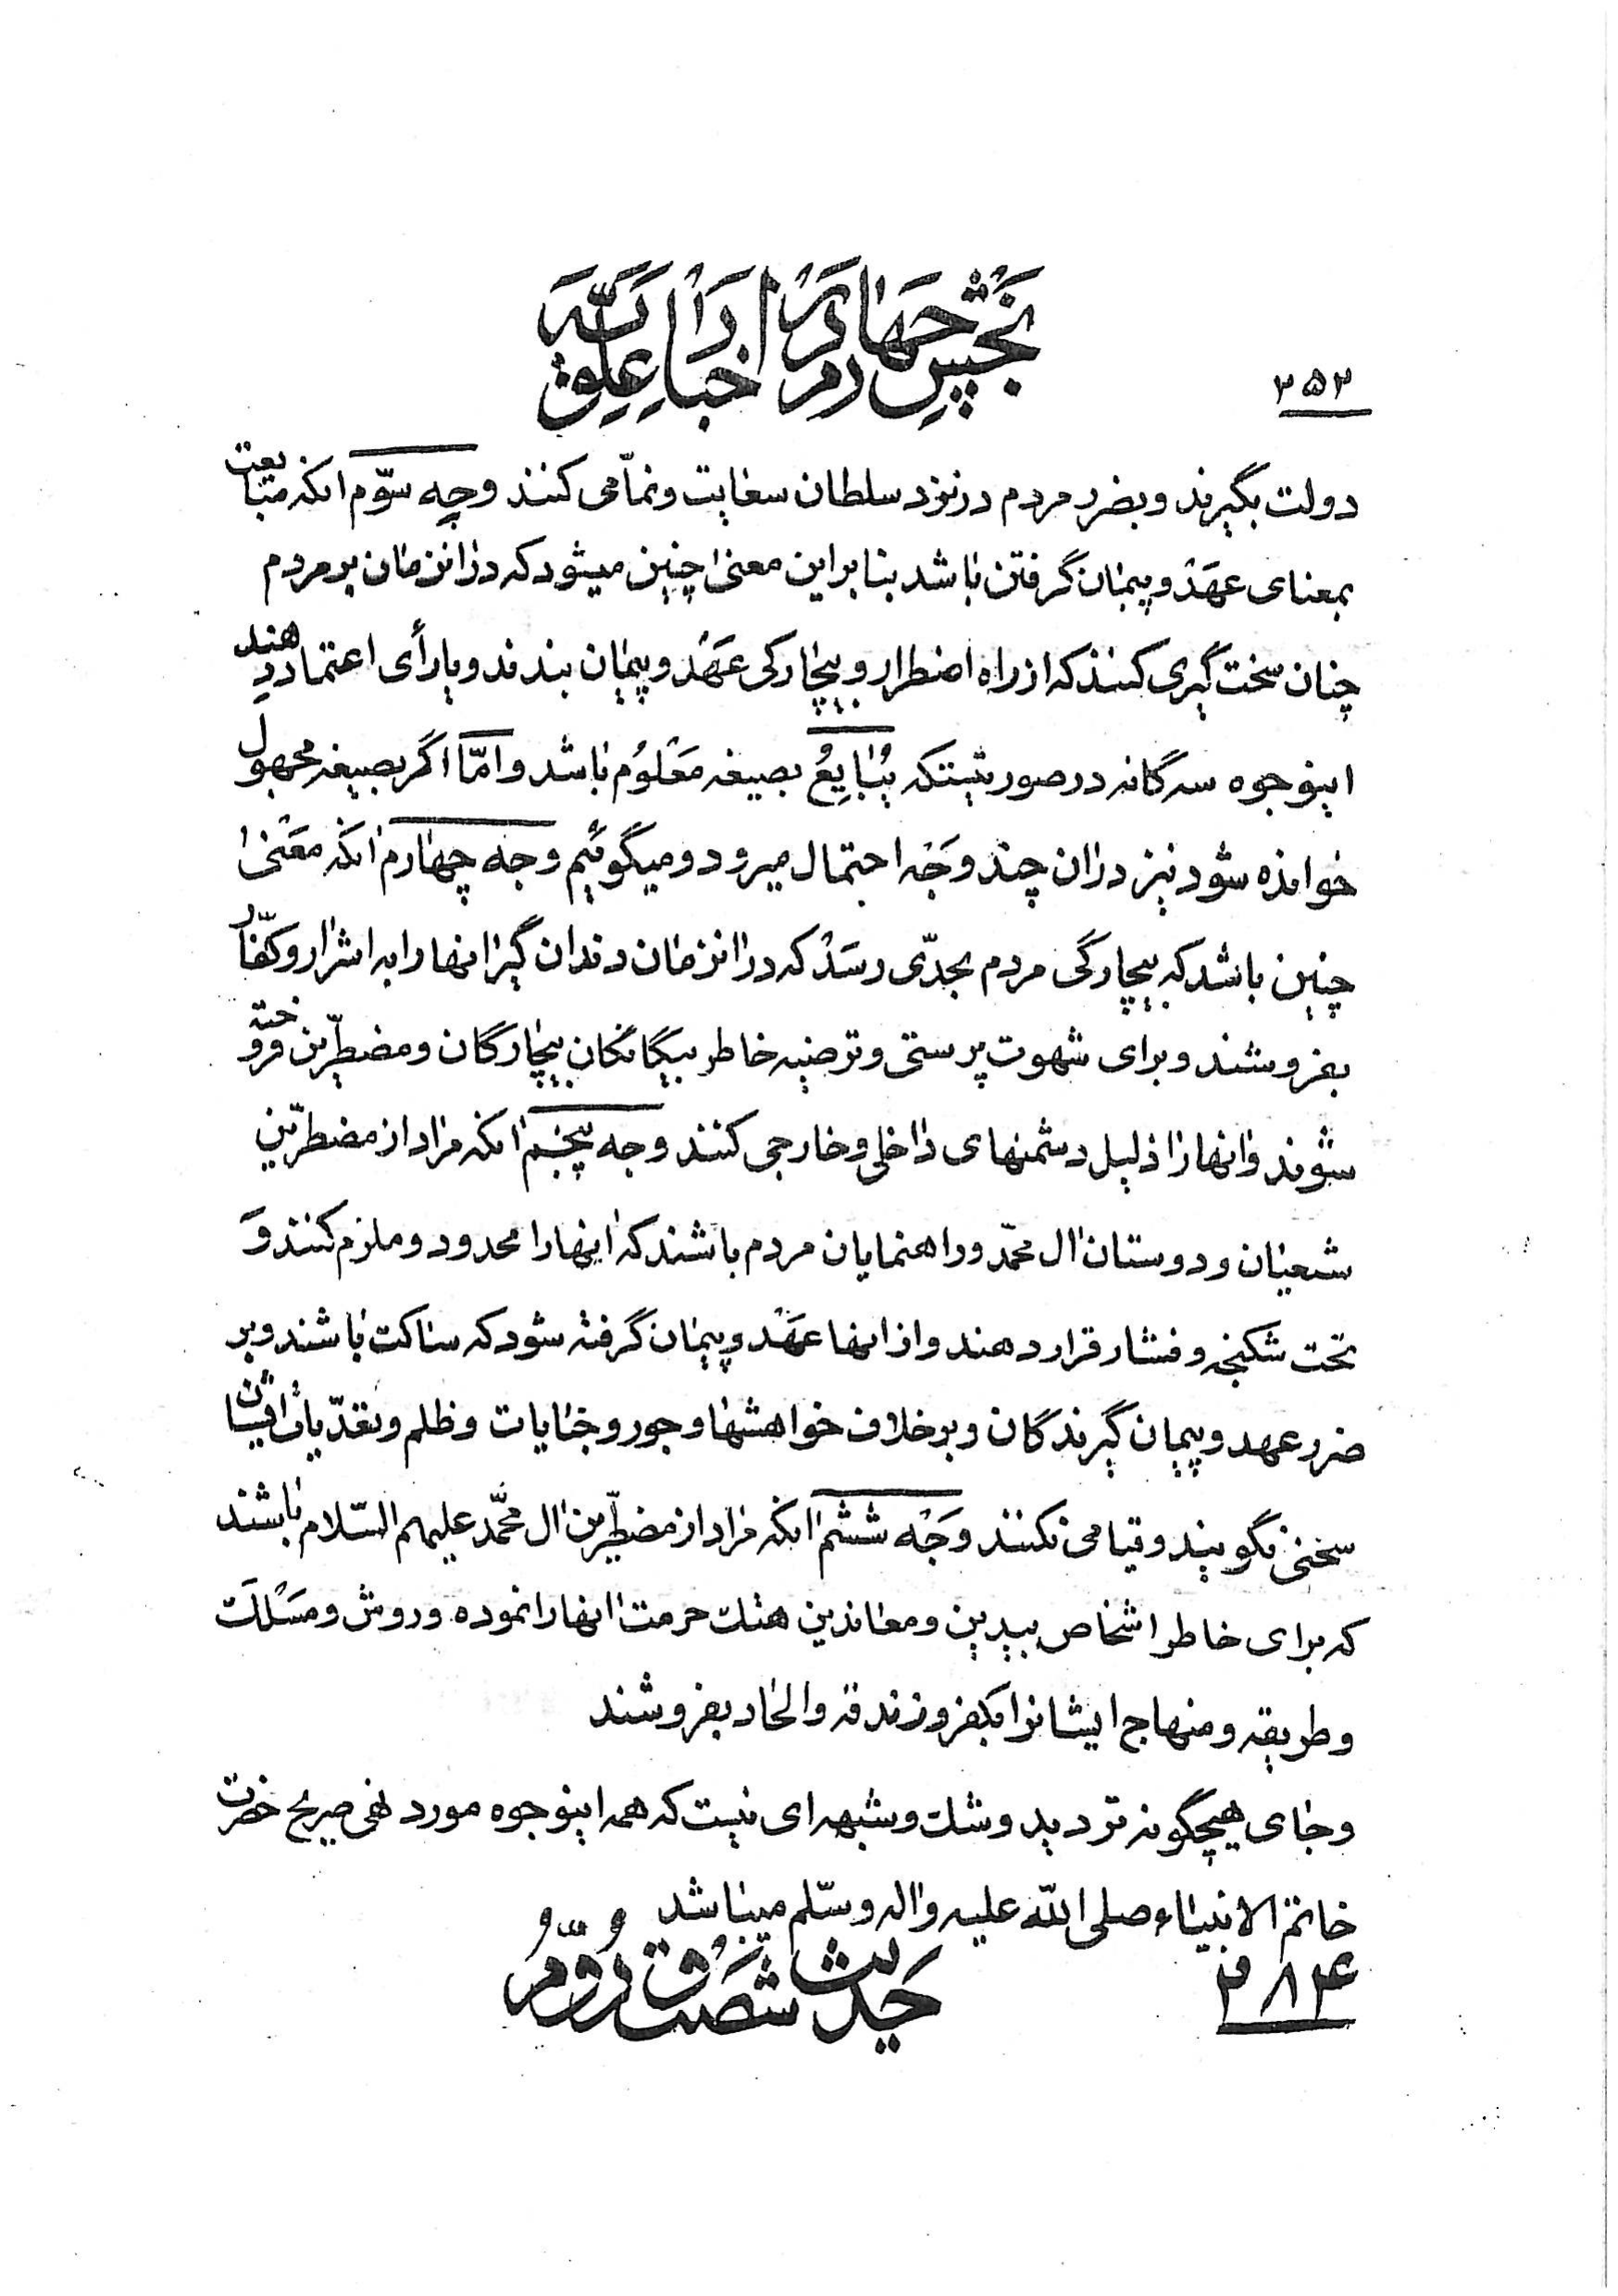 بخش چهارم در اخبار علویّه
۳۵۳
دولت بگیرند و بضرر مردم در نزد سلطان سعایت و نمّامی کنند وجه سوّم انکه مبایعت
بمعنای عهد و پیمان گرفتن باشد بنا براین معنی چنین میشود که در انزمان بر مردم
چنان سخت گیری کنند که از راه اضطرار و بیچارگی عهد و پیمان بندند و یا رأی اعتماد دهند
اینوجوه سه گانه در صورتیستکه یُبایِعُ بصیغه معلوم باشد و امّا اگر بصیغه مجهول
خوانده شود نیز در ان چند وجه احتمال میرود و میگوئیم وجه چهارم انکه معنی
چنین باشد که بیچارگی مردم بحدّی رسد که در انزمان دندان گیر انها را به اشرار و کفّار
بفروشند و برای شهوت پرستی و ترضیه خاطر بیگانگان بیچارگان و مضطرّین فروخته
شوند و انها را ذلیل دشمنهای داخلی و خارجی کنند وجه پنجم انکه مراد از مضطرّین
شیعیان و دوستان ال محمّد و راهنمایان مردم باشند که اینها را محدود و ملزم کنند و
تحت شکنجه و فشار قرار دهند و از انها عهد و پیمان گرفته شود که ساکت باشند و بر
ضرر عهد و پیمان گیرندگان و بر خلاف خواهشها و جور و جنایات و ظلم و تعدّیات ایشان
سخنی نگویند و قیامی نکنند وجه ششم انکه مراد از مضطرّین ال محمّد علیهم السّلام باشند
که برای خاطر اشخاص بیدین و معاندین هتک حرمت انها را نموده و روش و مسلک
و طریقه و منهاج ایشانرا بکفر و زندقه و الحاد بفروشند
و جای هیچگونه تردید و شک و شبهه ای نیست که همه اینوجوه مورد نهی صریح حضرت
خاتم الانبیاء صلی اللّه علیه و اله و سلّم میباشد
۲۸۴
حدیث شصت و دوّم